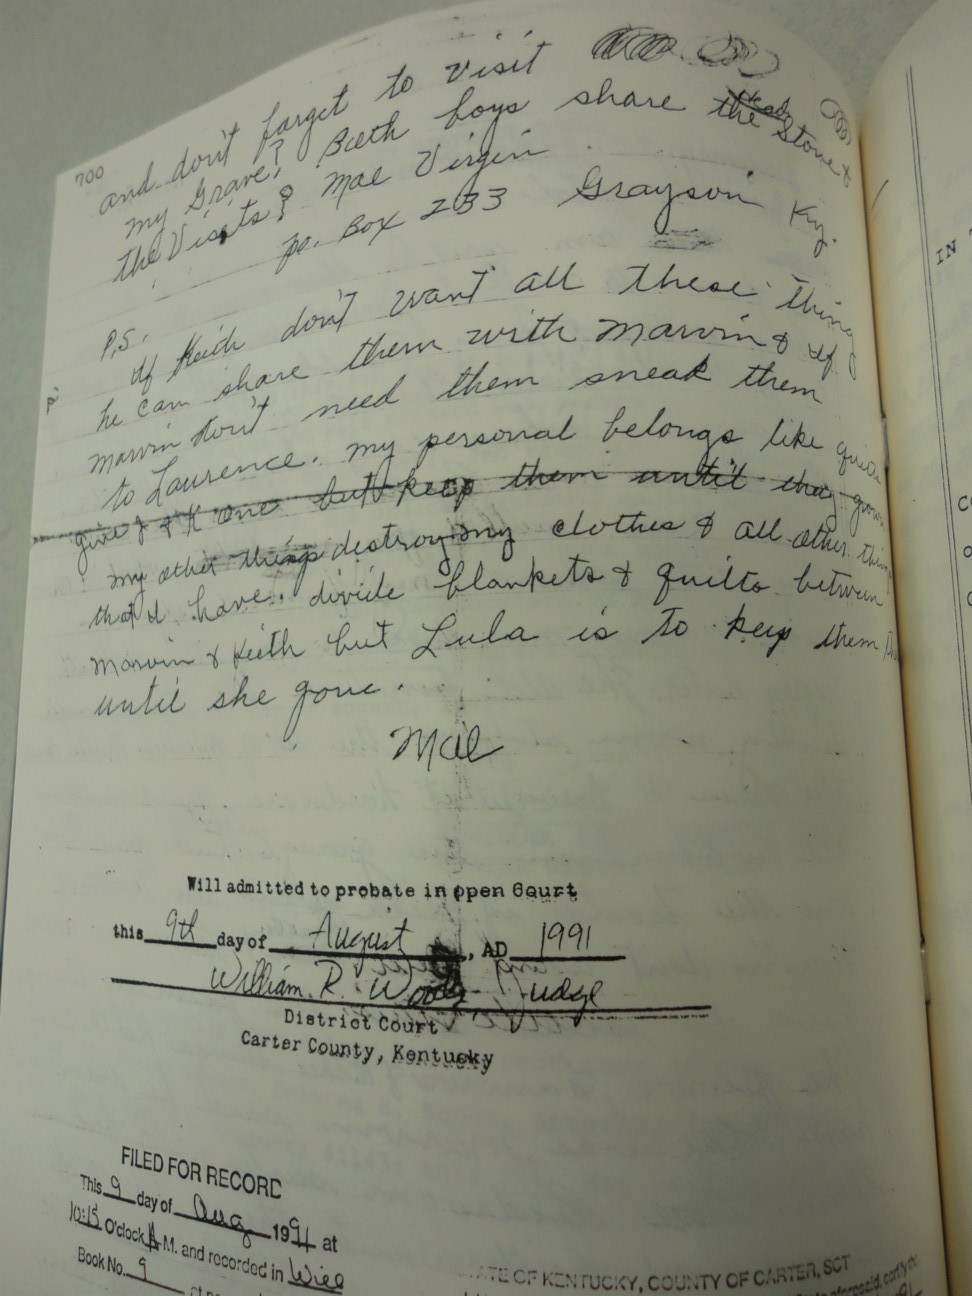 700
and don't forget to visit
my Grave, Both boys share the Stone &
the Visits? Mae Virgin
po. Box 233 Grayson Ky.
P,S,
If Keith don't want all these thing
he can share them with Marvin & If
Marvin don't need them sneak them
to Laurence. my personal belongs like
give J & K one but keep them until they grow
my other things destroy my clothes & all other thing
that I have. divide blankets & quilts between
Marvin & Keith but Lula is to keep them
until she gone.
Mae
Will admitted to probate in open Court
this 9th day of August, AD 1991
William R. Woods Judge
District Court
Carter County, Kentucky
FILED FOR RECORD
This 9 day of Aug 1991 at
10:15 O'clock A M. and recorded in Will
Book No. 9
ATE OF KENTUCKY, COUNTY OF CARTER, SCT
IN